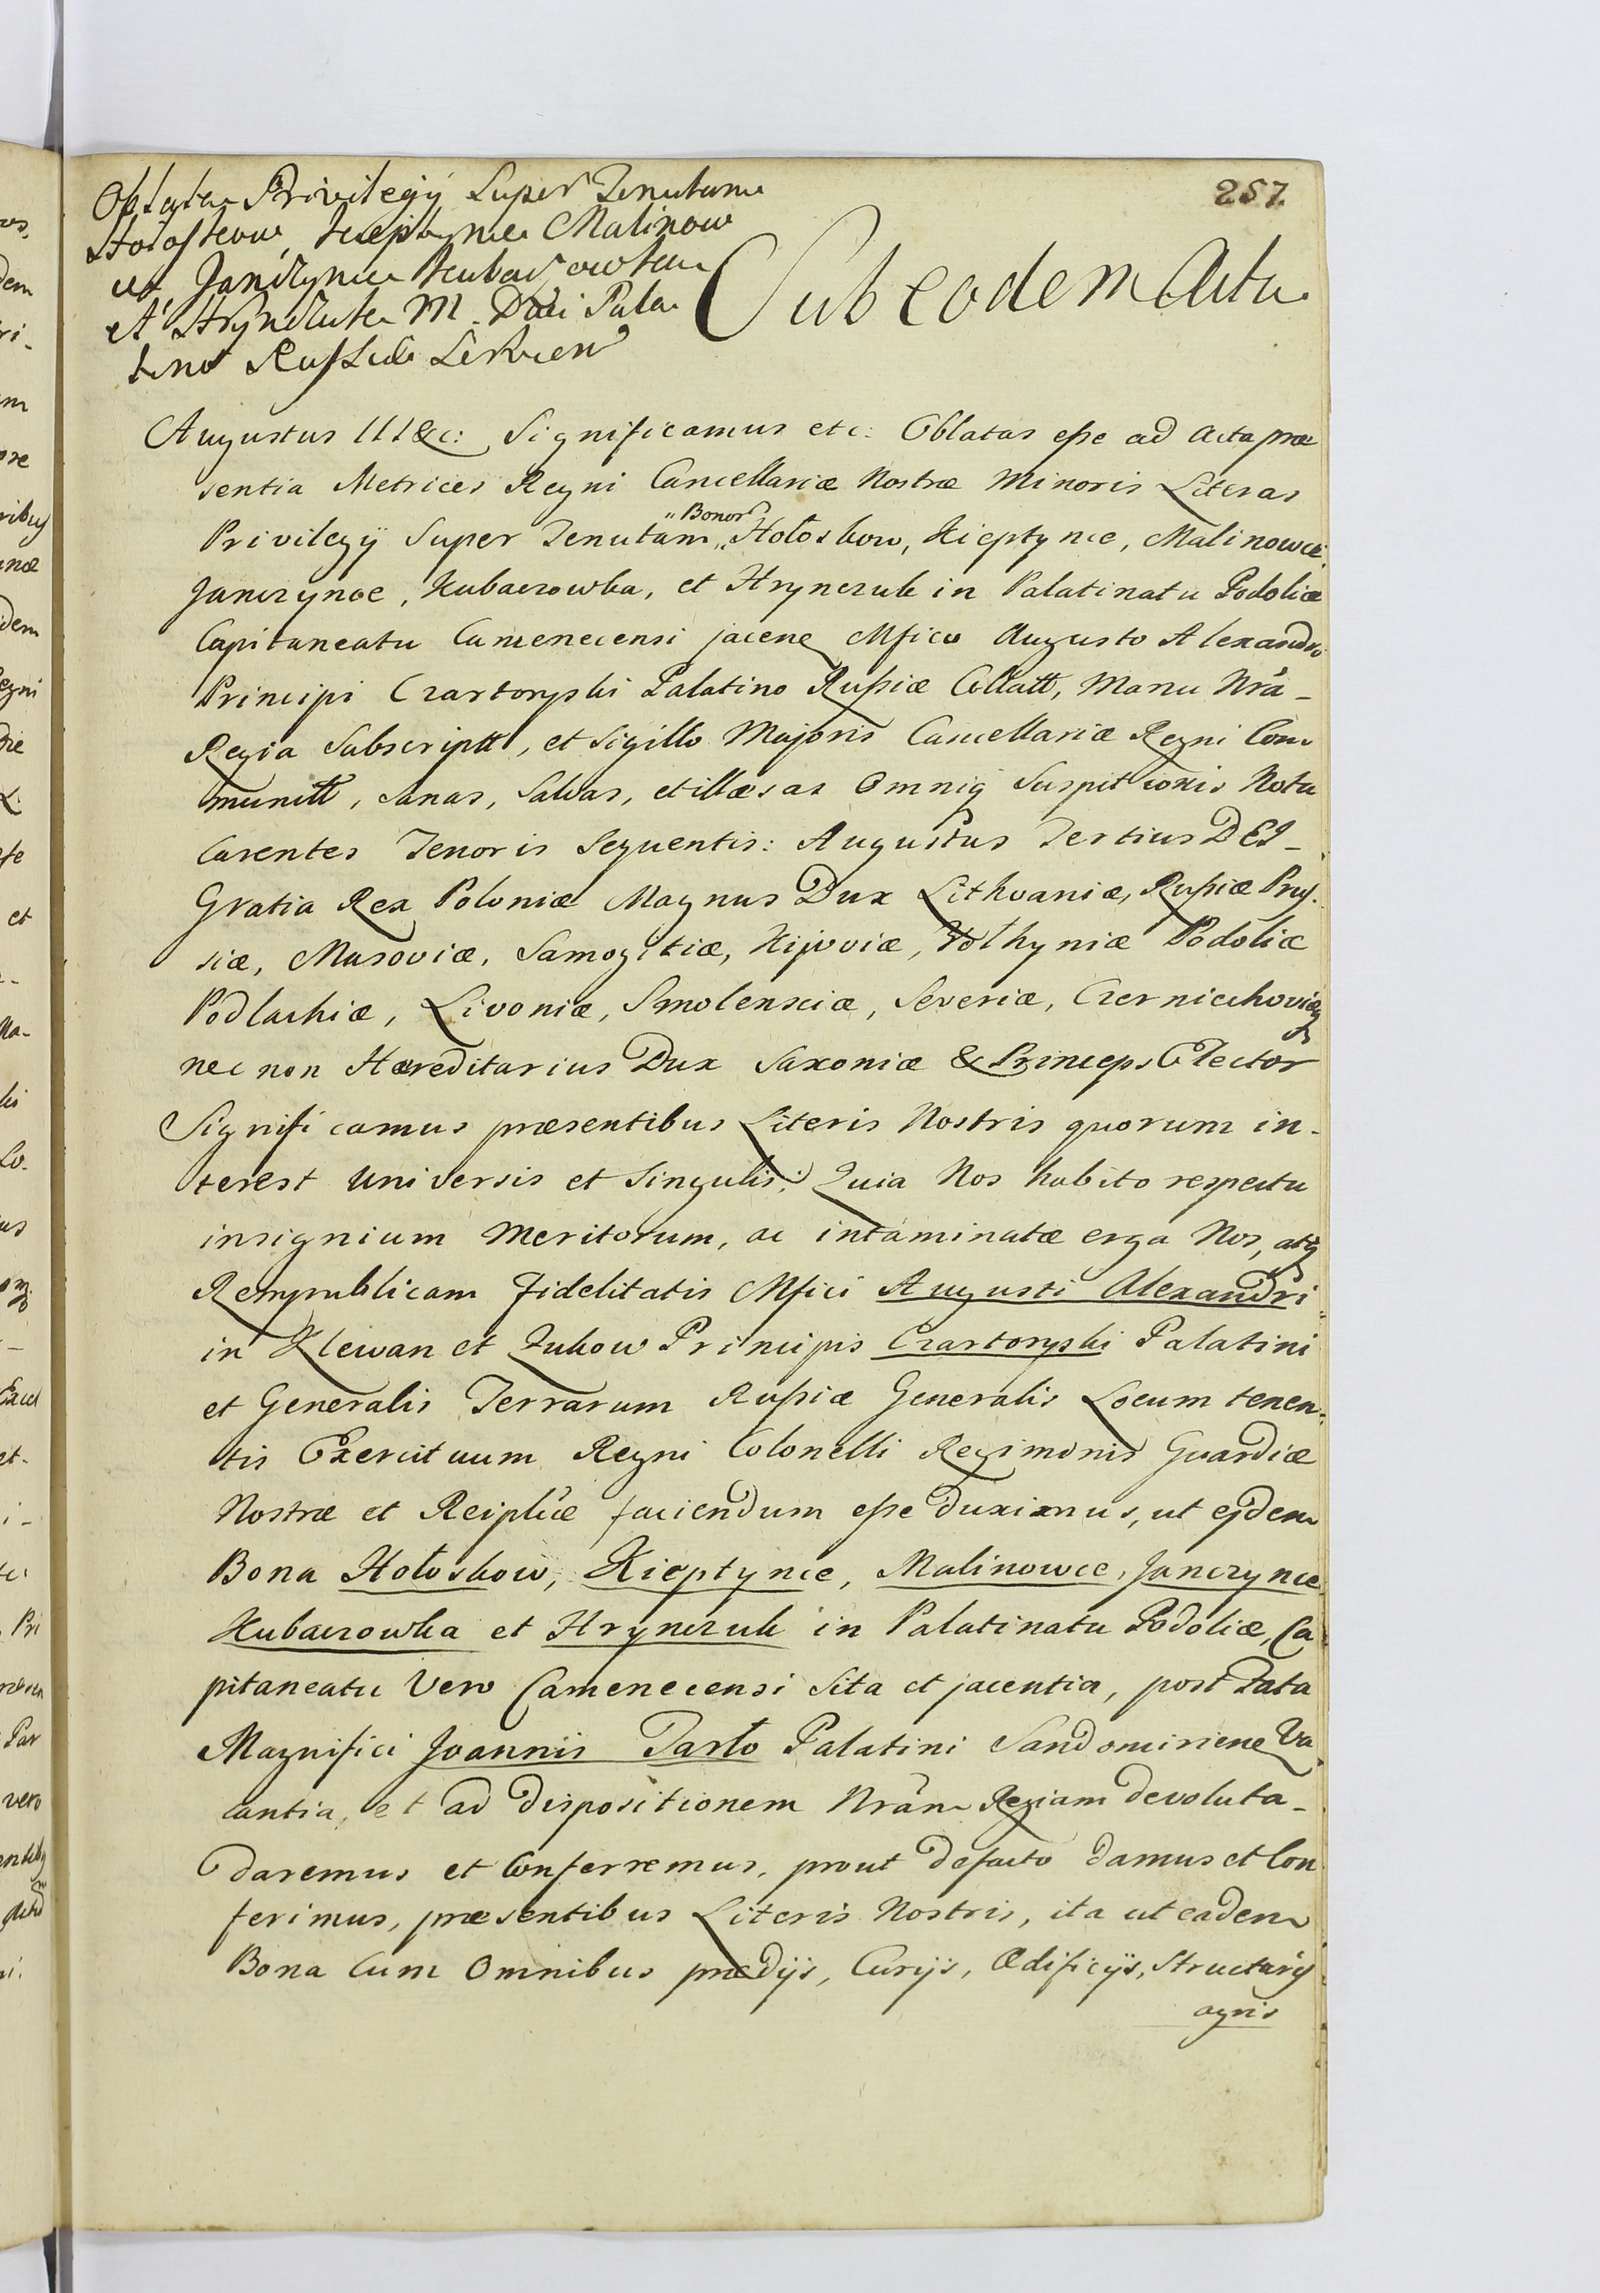 257.
Oblata Privilegij Super Tenutam
Hołoskow, Kieptynce Malinow
ce Janczynce Kubaczowka
et Hrynczuk M. Dñi Pala
tino Russiæ Servien
Sub eodem Actu
Augustus III &c: Significamus etc: Oblatas esse ad Acta præ
sentia Metrices Regni Cancellariæ Nostræ Minoris Literas
Privilegÿ Super Tenutam „Bonor„ Hołoskow, Kieptynce, Malinowce
Janczynce, Kubaczowka, et Hrynczuk in Palatinatu Podoliæ
Capitaneatu Camenecensi jacen Mfico Augusto Alexandro
Principi Czartoryski Palatino Russiæ Collatt, Manu Nrã-
Regia Subscriptt, et Sigillo Majoris Cancellariæ Regni Com
munitt, sanas, Salvas, et illæsas Omniq Suspitionis Nota
Carentes Tenoris Sequentis: Augustus Tertius DEI-
Gratia Rex Poloniæ Magnus Dux Lithvaniæ, Russiæ Prus.
siæ, Masoviæ, Samogitiæ, Kijoviæ, Volhyniæ Podoliæ
Podlachiæ, Livoniæ, Smolensciæ, Severiæ, Czernichoviæq
nec non Hæreditarius Dux Saxoniæ & Princeps Elector
Significamus præsentibus Literis Nostris quorum in-
terest Universis et Singulis; Quia Nos habito respectu
insignium Meritorum, ac intaminatæ erga Nos, atq
Rempublicam fidelitatis Mfici Augusti Alexandri
in Klewan et Zukow Principis Czartoryski Palatini
et Generalis Terrarum Russiæ Generalis Locum tenen-
tis Exercituum Regni Colonelli Regimonis Guardiæ
Nostræ et Reiplicæ faciendum esse duximus, ut ejdem
Bona Hołoskow, Kieptynce, Malinowce, Janczynce
Kubaczowka et Hrynczuk in Palatinatu Podoliæ, Ca
pitaneatu Vero Camenecensi Sita et jacentia, post Fata
Magnifici Joannis Tarło Palatini Sandomiriene Va
cantia, et ad dispositionem Nrãm Regiam devoluta-
daremus et Conferremus, prout defacto damus et Con
ferimus, præsentibus Literis Nostris, ita ut eadem
Bona Cum Omnibus prædijs, Curijs, Ædificÿs, Structurÿ
agris